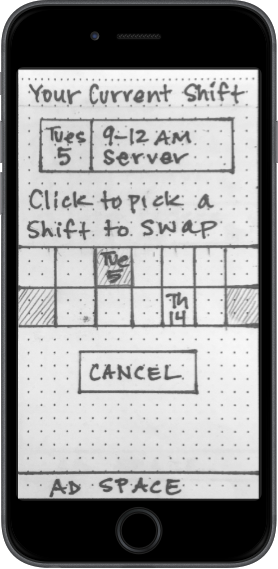 Your Current Shift
Tues 9-12 AM
5 Server
Click to pick a
Shift to SWAP
Tue
5
Th
14
CANCEL
AD SPACE